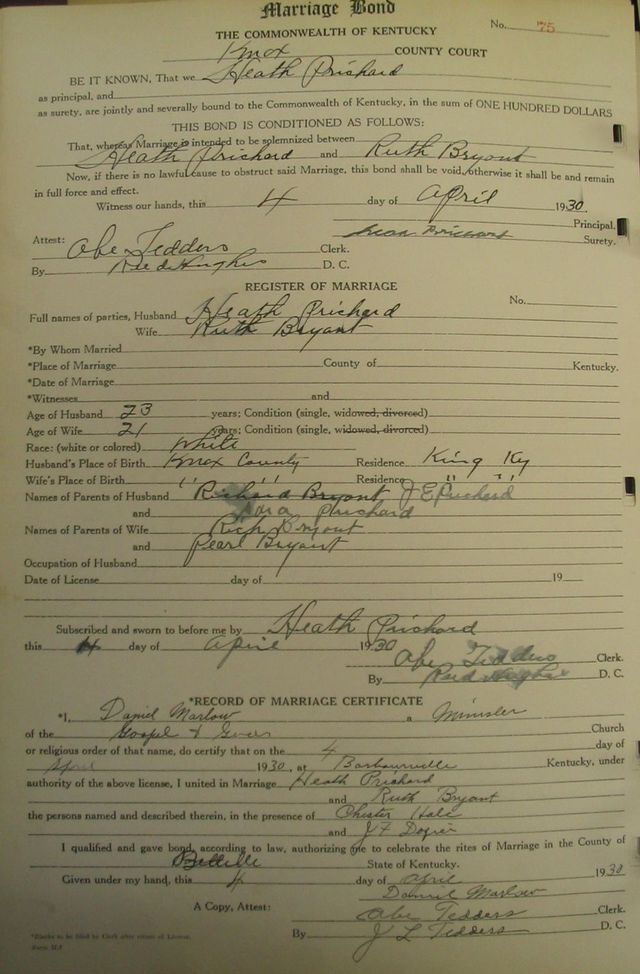 Marriage Bond
No. 75
THE COMMONWEALTH OF KENTUCKY
Knox COUNTY COURT
BE IT KNOWN, That we Heath Prichard
as principal, and
as surety, are jointly and severally bound to the Commonwealth of Kentucky, in the sum of ONE HUNDRED DOLLARS
THIS BOND IS CONDITIONED AS FOLLOWS:
That, whereas Marriage is intended to be solemnized between
Heath Prichard and Ruth Bryant
Now, if there is no lawful cause to obstruct said Marriage, this bond shall be void, otherwise it shall be and remain
in full force and effect.
Witness our hands, this 4 day of April 1930.
Principal.
Attest: Abe Tedders Clerk. Heath Prichard Surety.
By D. C.
REGISTER OF MARRIAGE
No.
Full names of parties, Husband Heath Prichard
Wife Ruth Bryant
*By Whom Married
*Place of Marriage County of Kentucky.
*Date of Marriage
*Witnesses and
Age of Husband 23 years; Condition (single, widowed, divorced)
Age of Wife 21 years; Condition (single, widowed, divorced)
Race: (white or colored) White
Husband's Place of Birth Knox County Residence King Ky
Wife's Place of Birth " " Residence " "
Names of Parents of Husband Richard Bryant J E Prichard
and Prichard
Names of Parents of Wife Rich Bryant
and Pearl Bryant
Occupation of Husband
Date of License day of 19
Subscribed and sworn to before me by Heath Prichard
this 4 day of April 1930
Abe Tedders Clerk.
By D. C.
*RECORD OF MARRIAGE CERTIFICATE
*I, Daniel Marlow a Minister
of the Gospel Church
or religious order of that name, do certify that on the 4 day of
April 1930, at Barbourville Kentucky, under
authority of the above license, I united in Marriage Heath Prichard
and Ruth Bryant
the persons named and described therein, in the presence of Chester Hale
and J F
I qualified and gave bond, according to law, authorizing me to celebrate the rites of Marriage in the County of
State of Kentucky.
Given under my hand, this 4 day of April 1930
Daniel Marlow
A Copy, Attest: Abe Tedders Clerk.
By J L Tedders D. C.
*Blanks to be filled by Clerk after return of License.